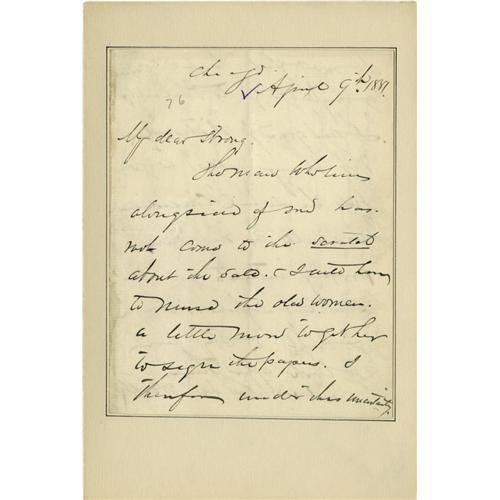 April 9th 1881.
76
My dear Strong.
The man who lives
alongside of me has
not come to the scratch
about the sale. I
to nurse the old woman.
a little more to get her
to sign the papers. I
therefore under this uncertainty